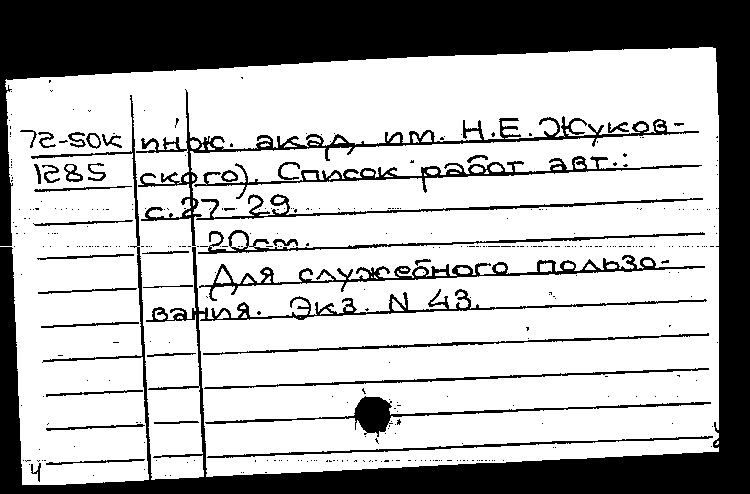 72-50к инж. акад. им. Н.Е. Жуков-
1285 ского). Список работ авт.:
с.27-29.
20cm.
Для служебного пользо-
вания. Экз. N 43.